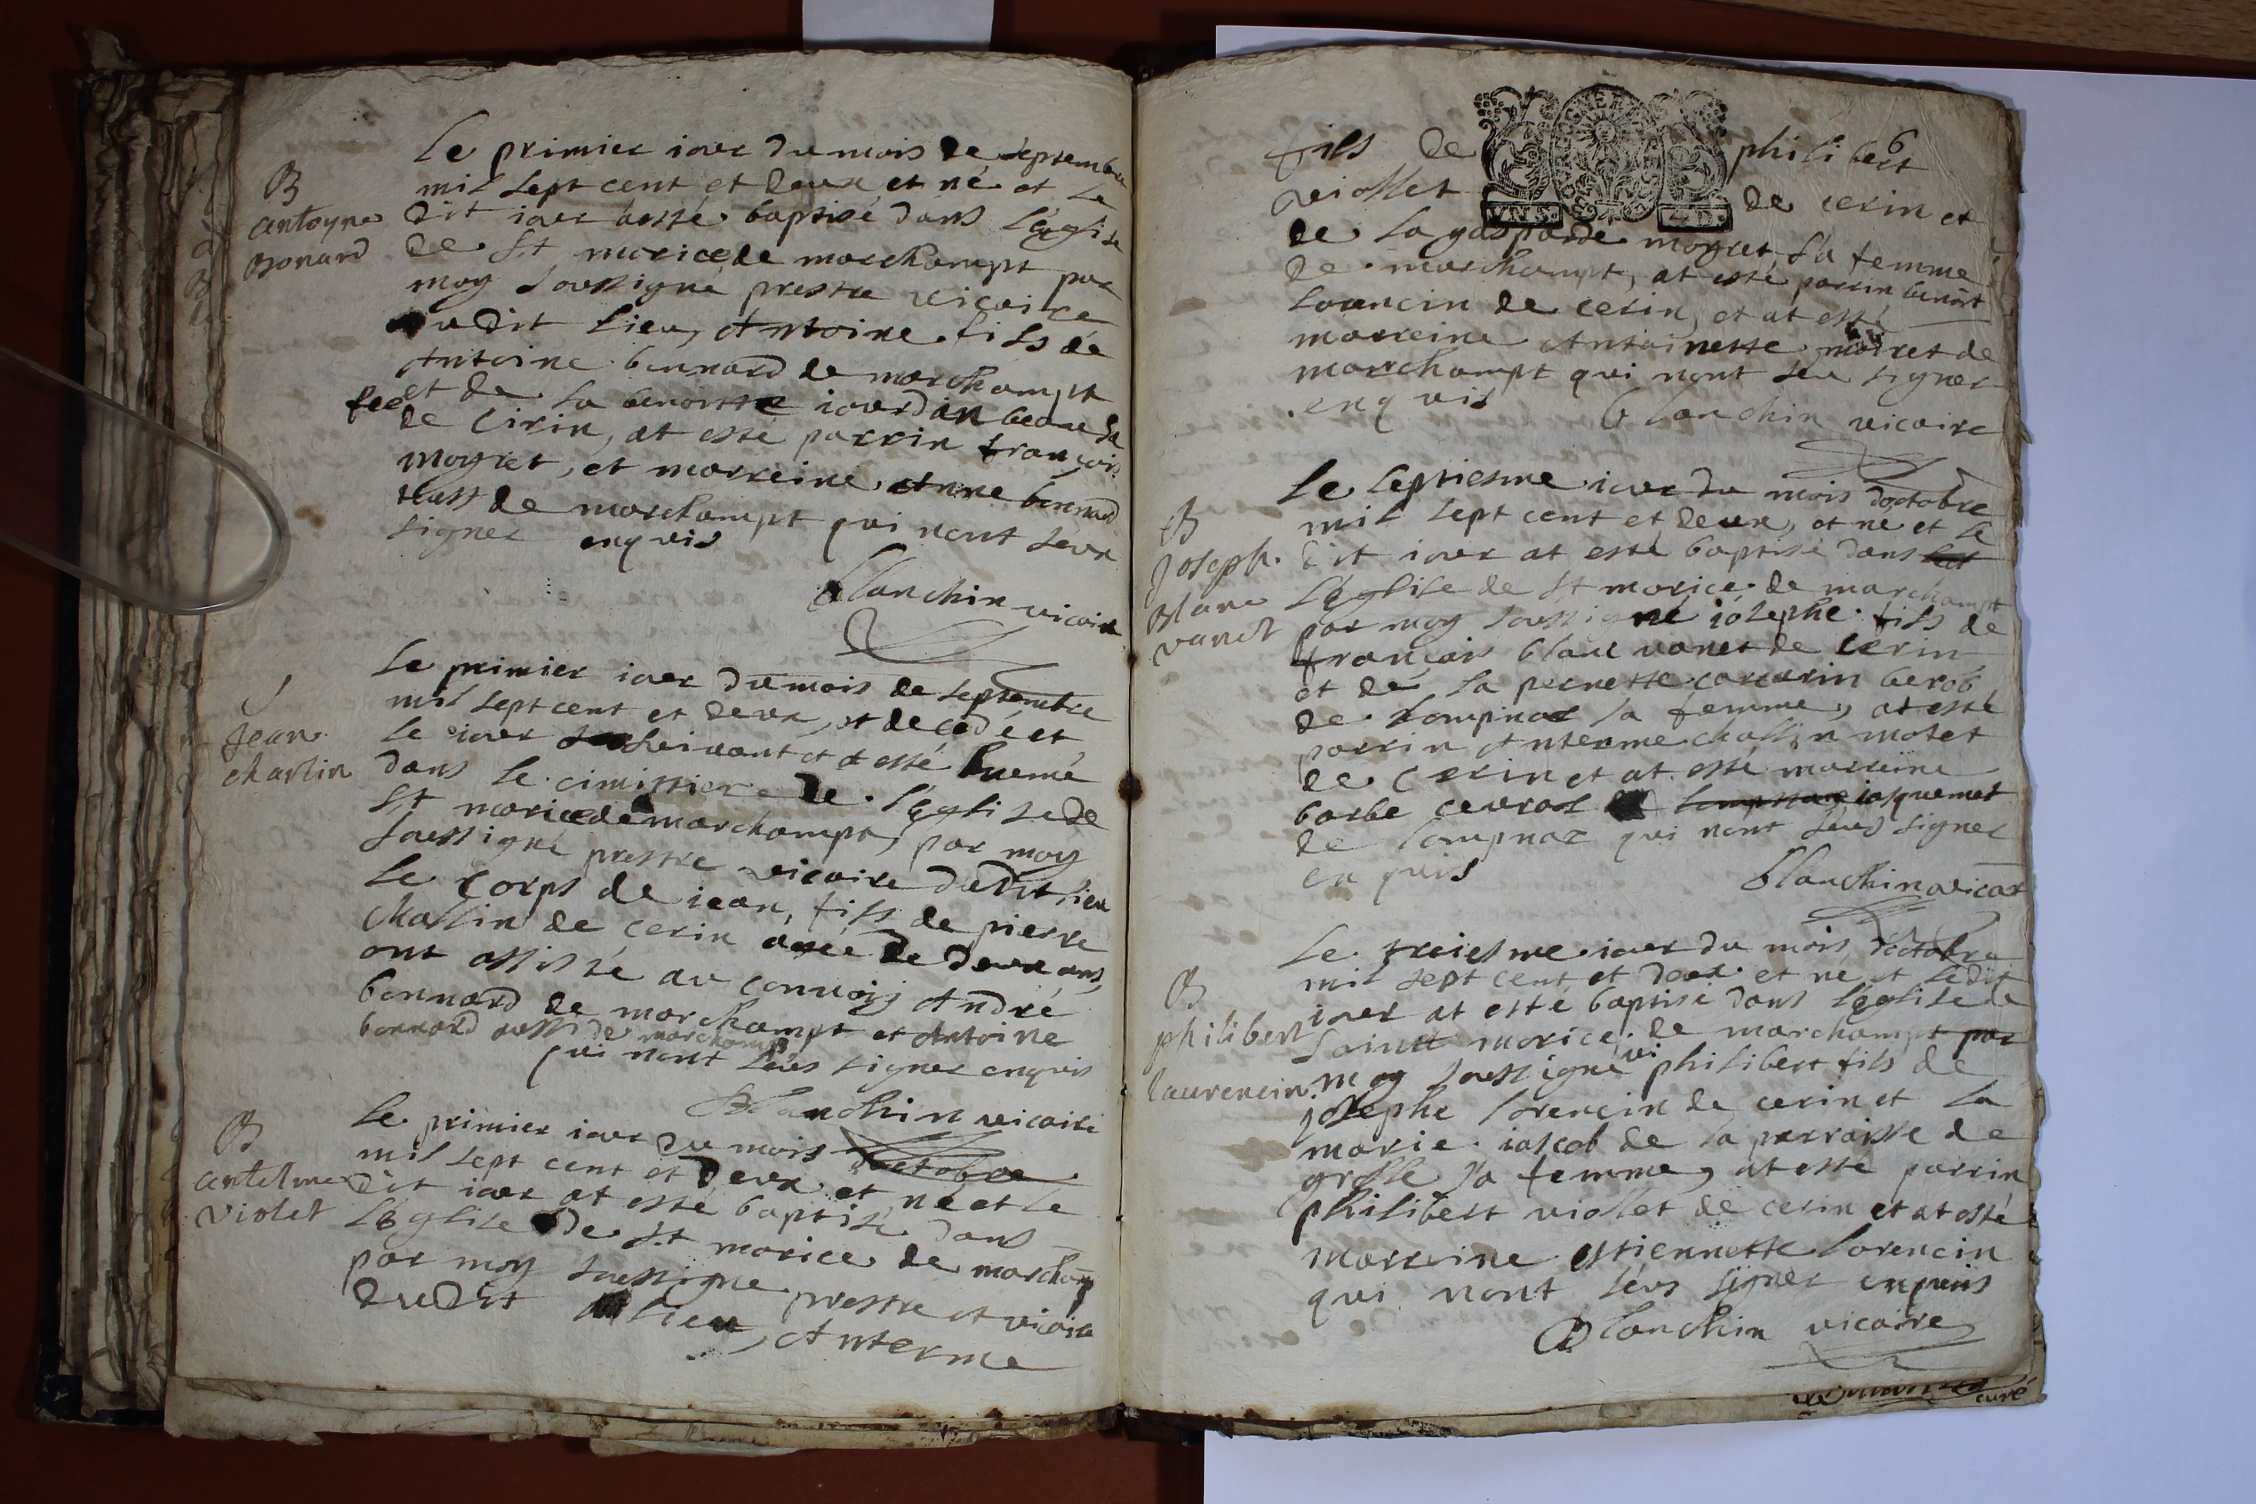 B
antoyne
Bonard
Le primier iour du mois de septembre
mil sept cent et deux et né et le
dit iour aesté baptisé dans l'église
de St moricede marchampt par
moy soussigné prestre vicaire
dudit lieu, Antoine fils de
Antoine bennard de marchampt
et de la benoitte iourdan sa
fee de Cirin, at esté parrin françois
moyret, et marreine Anne bennard
de marchampt qui nont seux
signer enquis
Blanchin vicaire
Jean
charlin
Le primier iour du mois de septembre
mil sept cent et deux, et decedé et
le iour suivant et a esté
dans le cimittiere de l'église de
St moricedemarchampt, par moy
soussigné prestre vicaire dudit lieu
le corps de iean, fils de pierre
Challin de cerin de deux ans,
ont assisté au convoiy André
bennard de marchampt et Antoine
bennard aussi de marchampt
qui nont seus signer enquis
Blanchin vicaire
B
antelme
violet
Le primier iour du mois d'octobre
mil sept cent et deux et né et le
dit iour at esté baptisé dans
l'Eglise de St morice de marchamp
par moy soussigne prestre et vicaire
dudit lieu, Anterme
6
VNS. 4D.
fils de philibert
viollet de cerin et
de la gasparde moyret sa femme
de marchampt, at esté parrin benoit
lorancin de cerin, et at esté
marreine Antoinette moiret de
marchampt qui nont seu signer
enquis Blanchin vicaire
B
Joseph
Blanc
vanet
Le septiesme iour du mois doctobre
mil sept cent et deux, et né et le
dit iour at esté baptisé dans
l'église de St morice de marchampt
par moy soussigné iosephe fils de
françois blanc vanet de cerin
et de la pernette
de lompnaz sa femme, at esté
parrin Anterme challin motet
de Cerin et at esté marreine
barbe iasquemet
de lompnaz qui nont seus signer
enquis Blanchin vicar
B
philibert
laurencin
Le treiesme iour du mois, d'octobre
mil sept cent, et deux et ne et ledit
iour at esté baptisé dans l'église de
Saint morice de marchampt par
moy soussigné vi philibert fils de
josephe lorencin de cerin et la
marie iascob de la parroisse de
grosle sa femme, at esté parrin
philibert viollet de cerin et at esté
marreine estiennette lorencin
qui nont séus signer enquis
Blanchin vicaire
curé